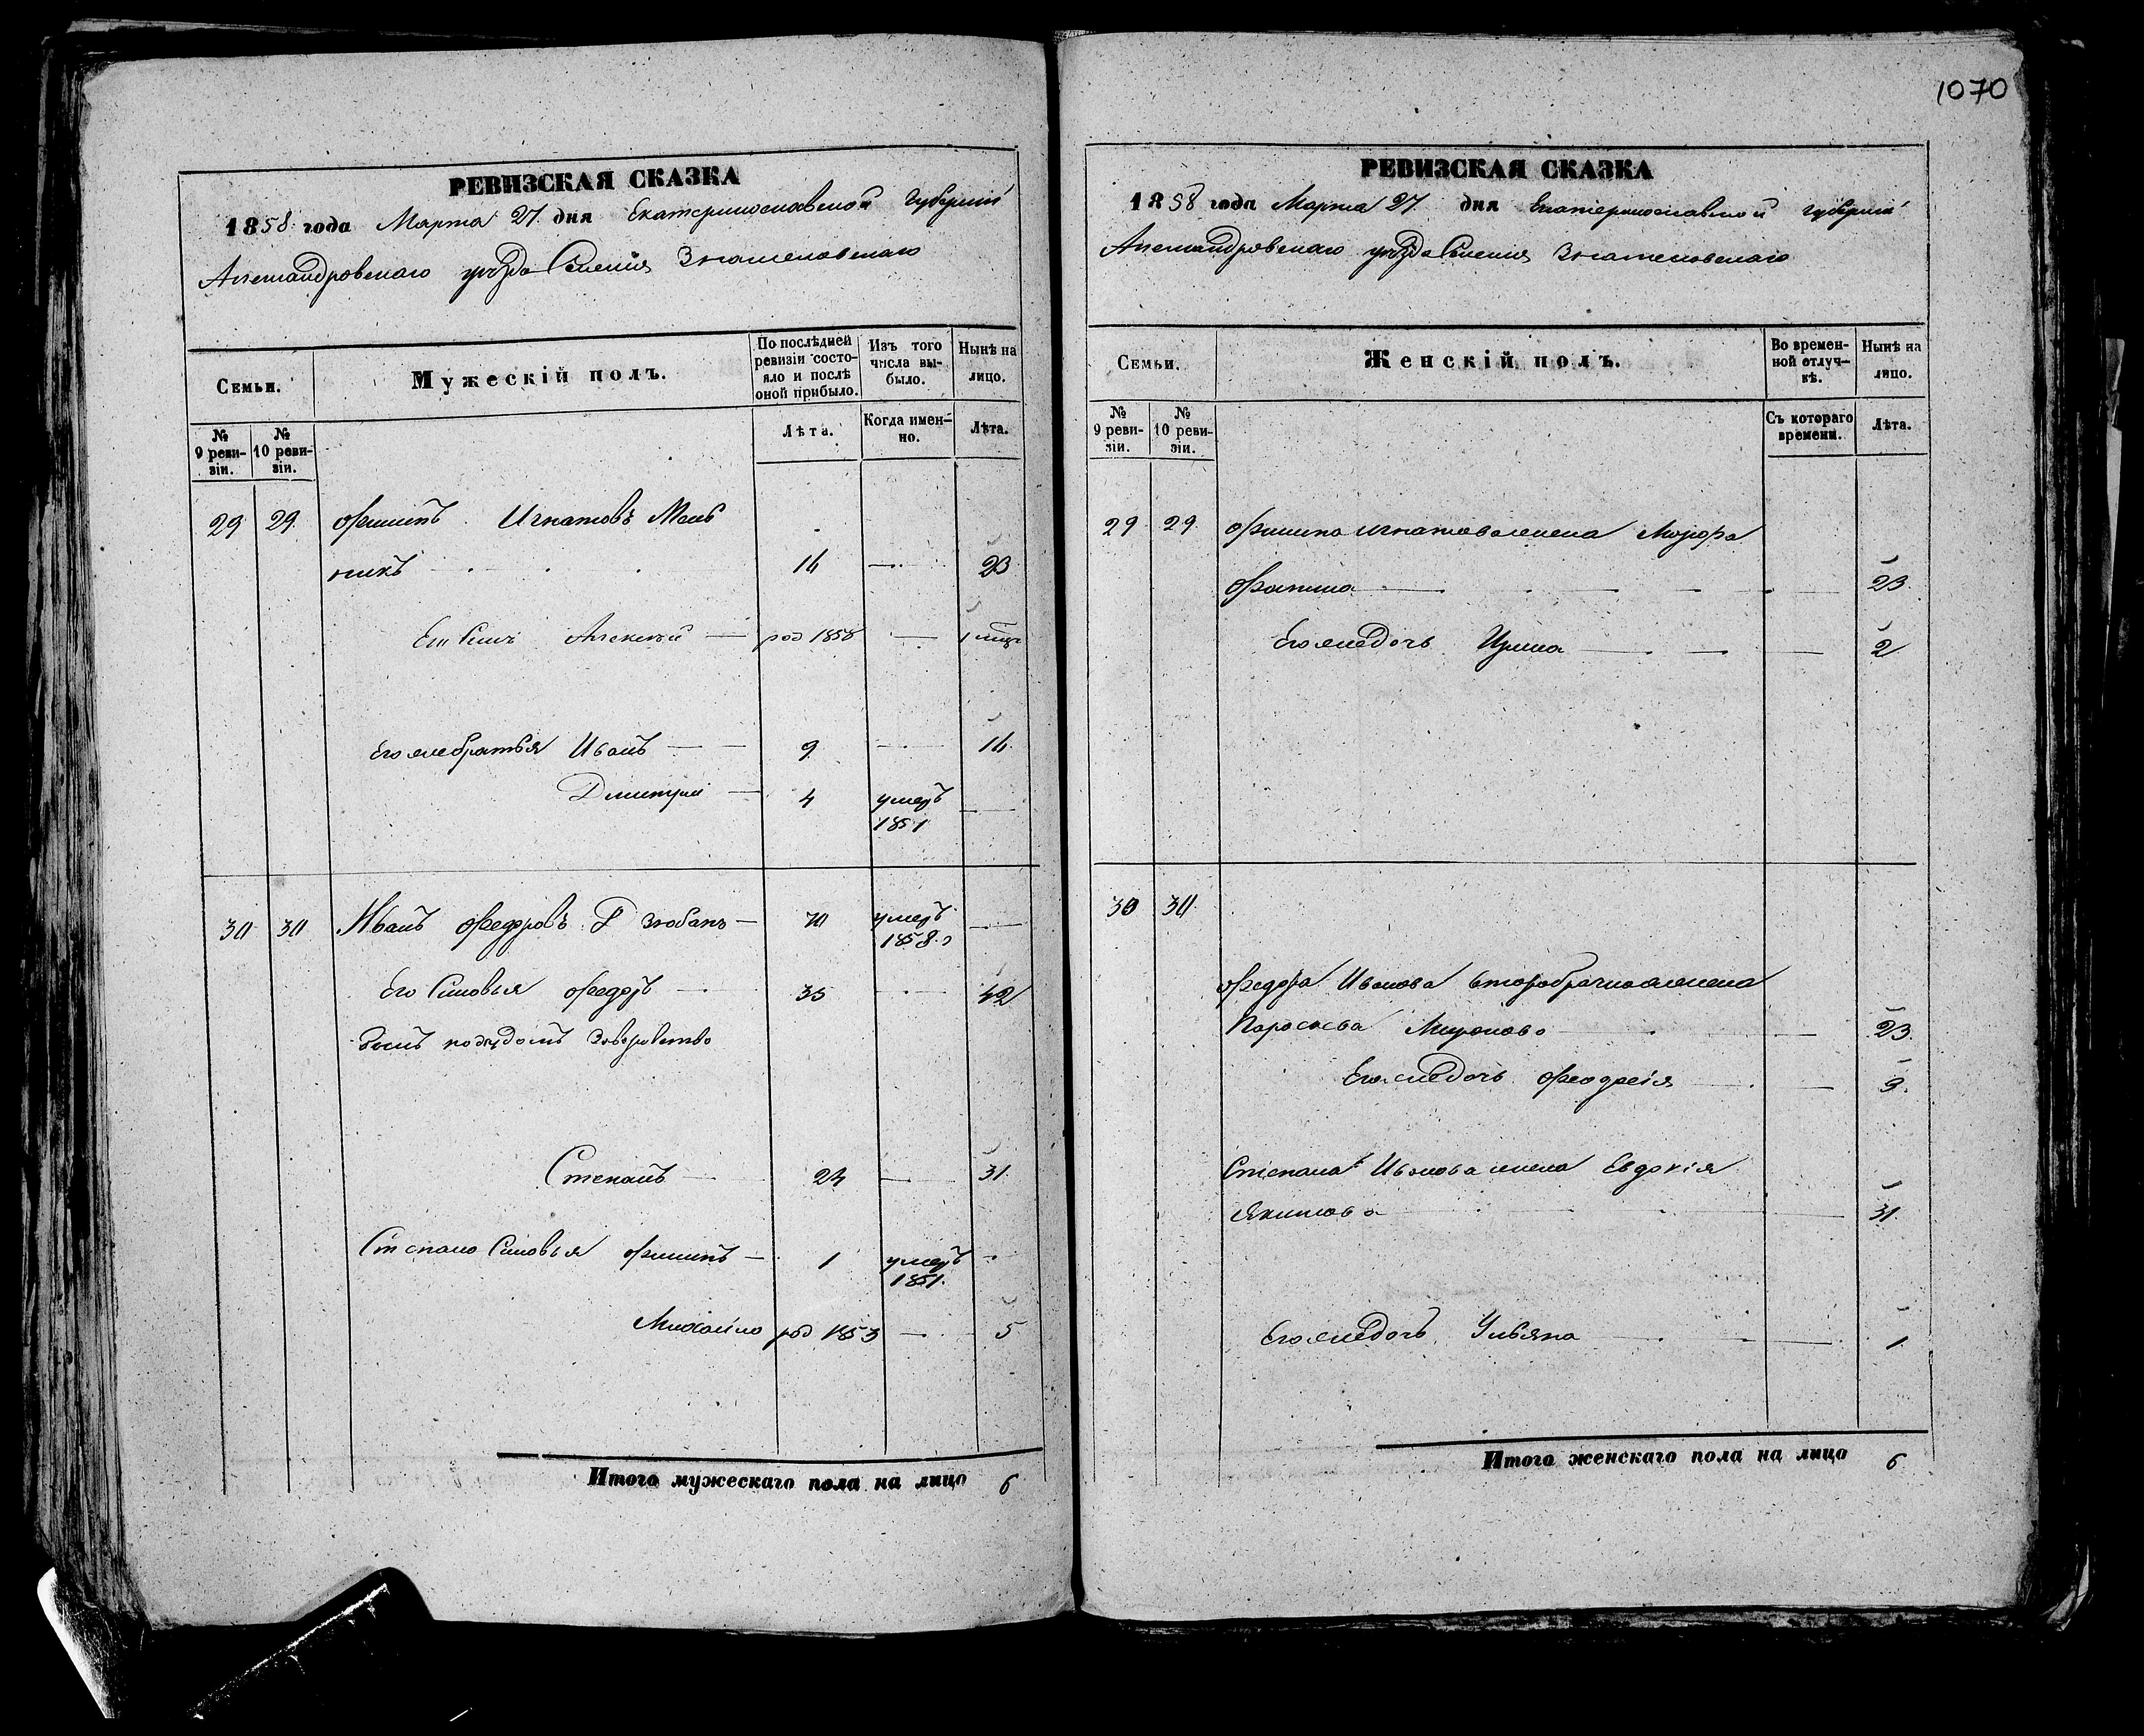 1070
РЕВИЗСКАЯ СКАЗКА
1858 года Марта 27 дня Екатеринославской Губернии
Александровскаго уѣзда Селенія Знаменовскаго
Семьи.
Мужескій полъ.
По послѣдней ревизіи состояло и послѣ оной прибыло.
Изъ того числа выбыло.
Нынѣ на лицо.
№ 9 ревизіи.
№ 10 ревизіи.
Лѣта.
Когда именно.
Лѣта.
29 29 Филипъ Игнатовъ Мель
никъ 16 — 23
Его Сынъ Алексѣй — род 1858 — 1 мѣц
Его же братья Иванъ — 9 — 16
Дмитрий — 4 умеръ 1851 —
30 30 Иванъ Федоровъ Дзюбанъ — 70 умеръ 1858 г —
Его Сыновья Федоръ — 35 — 42
Степанъ — 24 — 31
Степана Сыновья Филипъ — 1 умеръ 1851.
Михайло род 1853 — 5
Итого мужескаго пола на лицо 6
РЕВИЗСКАЯ СКАЗКА
1858 года Марта 27 дня Екатеринославской Губернии
Александровскаго уѣзда Селенія Знаменовскаго
Семьи.
Женскій полъ.
Во временной отлучкѣ.
Нынѣ на лицо.
№ 9 ревизіи.
№ 10 ревизіи.
Съ котораго времени.
Лѣта.
29 29 Филипа Игнатова жена Марфа
— 23
Его же дочь Ирина — 2
30 30
Федора Иванова второбрачная жена
Параскева Миронова — 23.
Его же дочь Феодосія — 9.
Степана Иванова жена Евдокія
Якимова — 31.
Его же дочь Ульяна — 1.
Итого женскаго пола на лицо 6